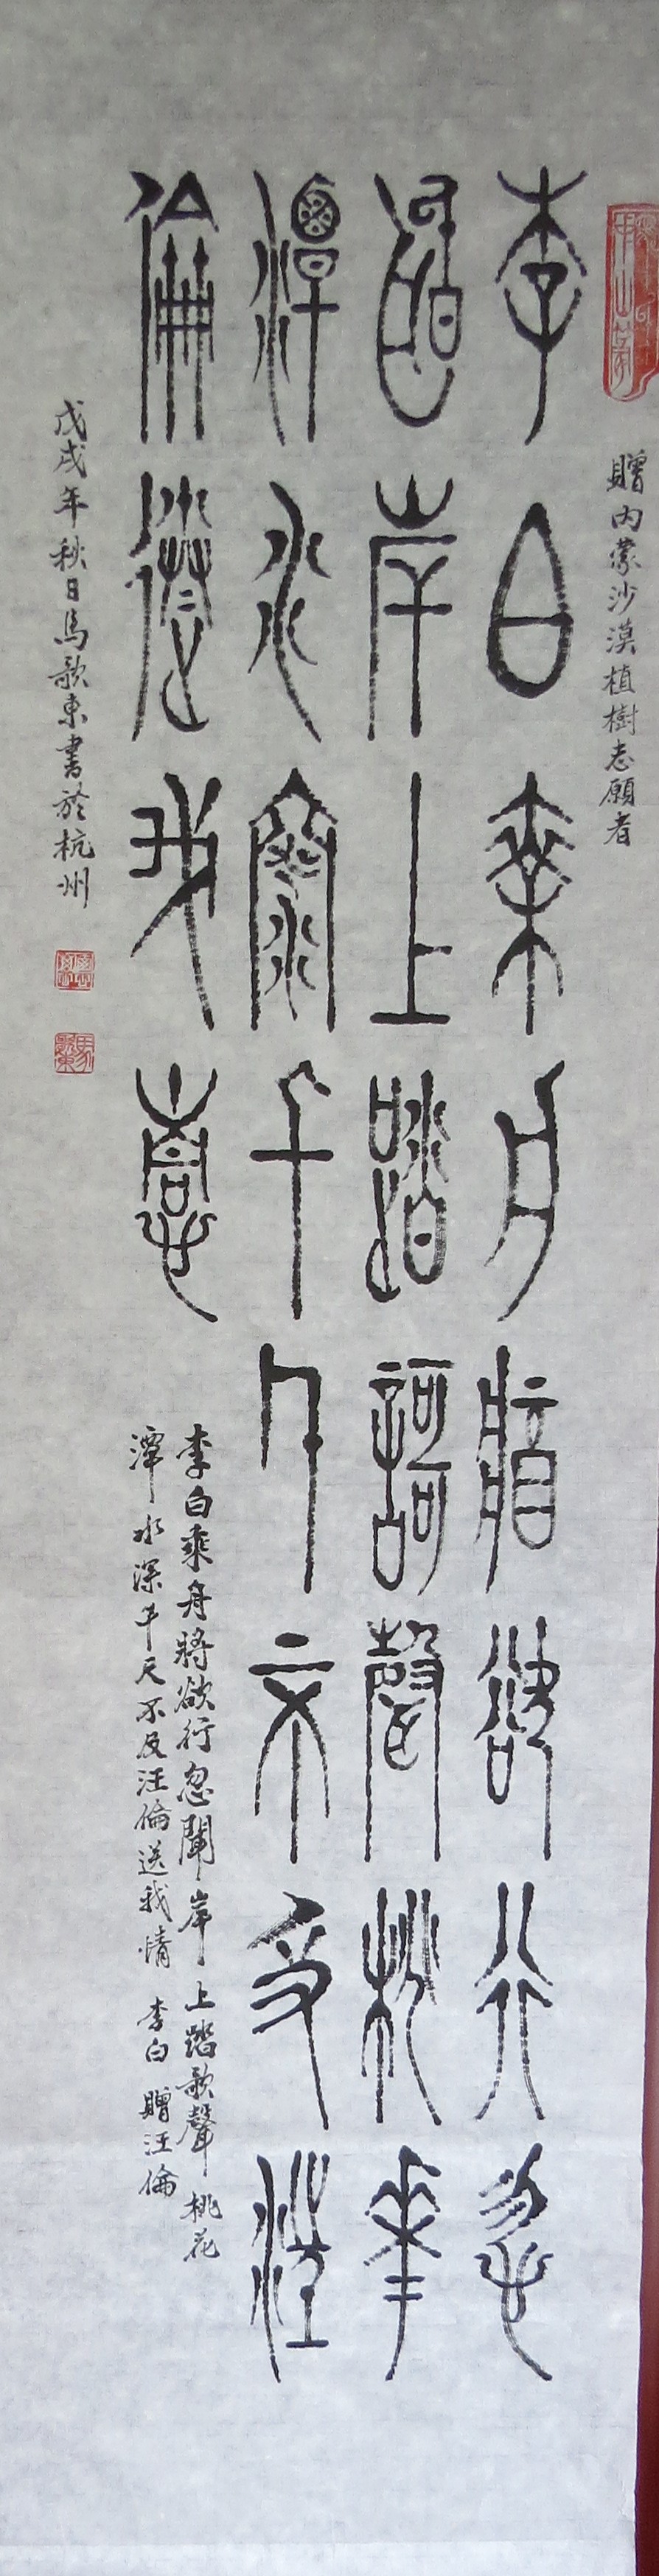 贈内蒙沙漠植樹志願者
李白乘舟將欲行忽
聞岸上踏歌聲桃華
潭水深千尺不及汪
倫送我情
李白乘舟將欲行忽聞岸上踏歌聲桃花
潭水深千尺不及汪倫送我情 李白 贈汪倫
戊戌年秋日馬歌東書於杭州
馬歌東